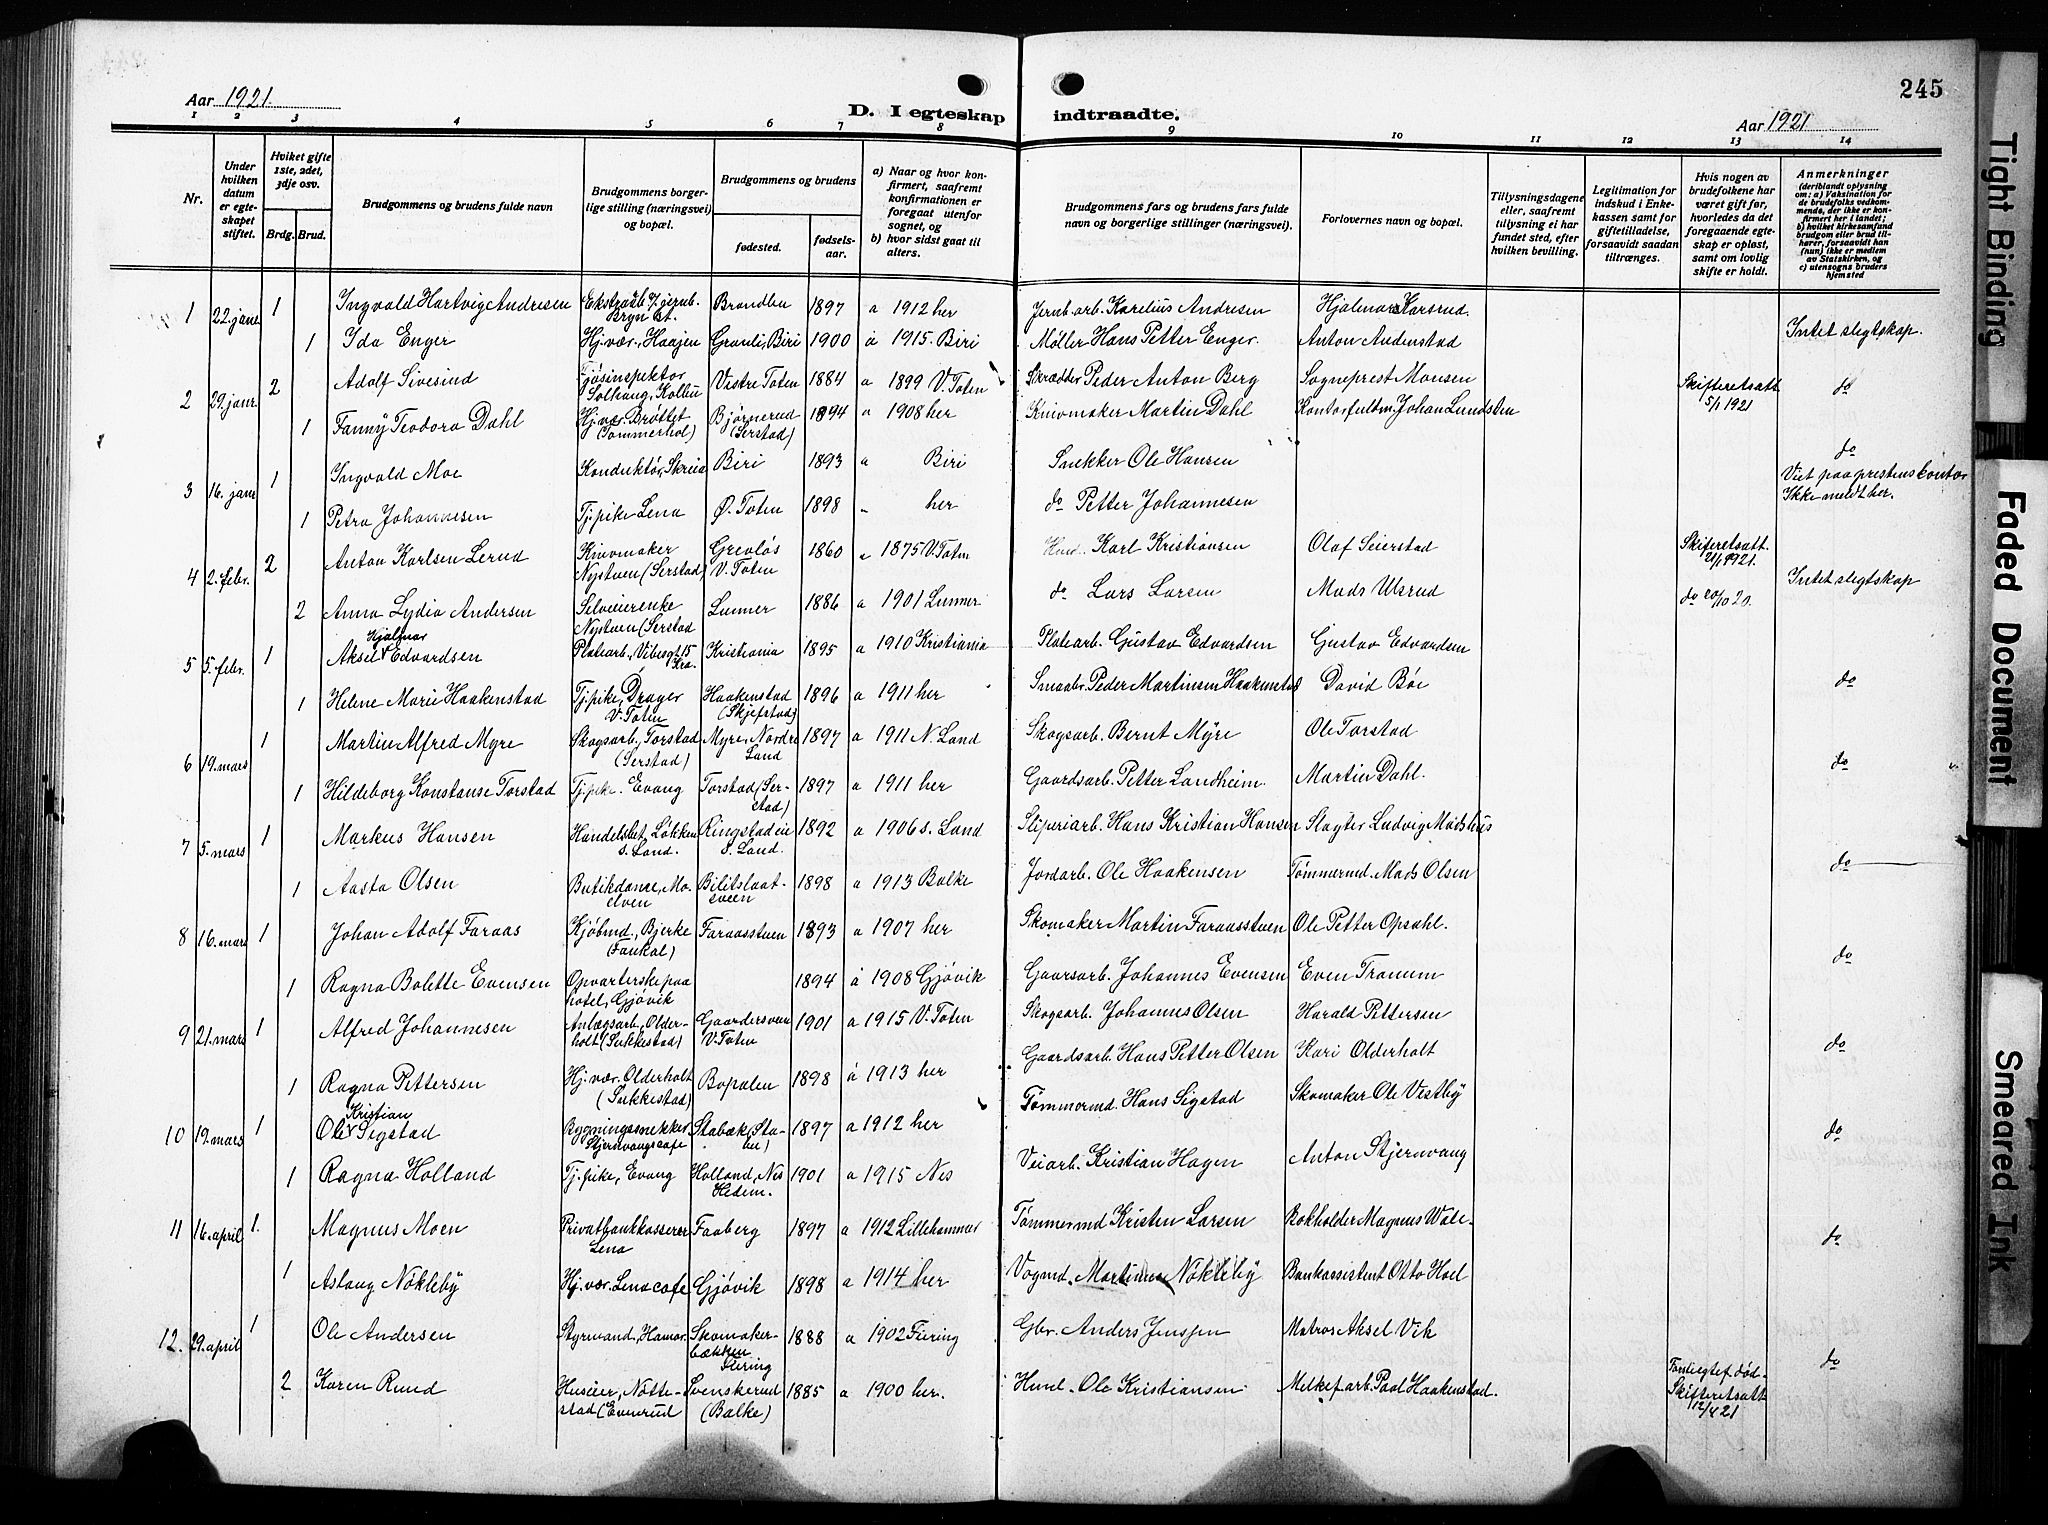 245
Aar 1921.
D. I egteskap indtraadte.
Aar 1921
1 2 3 4 5 6 7 8 9 10 11 12 13 14
Nr.
Under hvilken datum er egteskapet stiftet.
Hvilket gifte 1ste, 2det, 3dje osv.
Brdg. Brud.
Brudgommens og brudens fulde navn
Brudgommens borgerlige stilling (næringsvei) og bopæl.
Brudgommens og brudens
fødested.
fødselsaar.
a) Naar og hvor konfirmert, saafremt konfirmationen er foregaat utenfor sognet, og
b) hvor sidst gaat til alters.
Brudgommens fars og brudens fars fulde navn og borgerlige stillinger (næringsvei).
Forlovernes navn og bopæl.
Tillysningsdagene eller, saafremt tillysning ei har fundet sted, efter hvilken bevilling.
Legitimation for indskud i Enkekassen samt for giftetilladelse, forsaavidt saadan tiltrænges.
Hvis nogen av brudefolkene har været gift før, hvorledes da det foregaaende egteskap er opløst, samt om lovlig skifte er holdt.
Anmerkninger
(deriblandt oplysning om: a) Vaksination for de brudefolks vedkommende, der ikke er konfirmert her i landet; b) hvilket kirkesamfund brudgom eller brud tilhører, forsaavidt han (hun) ikke er medlem av Statskirken, og c) utensogns bruders hjemsted
1 22. janr 1 Ingvald Hartvig Andresen Ekstraarb. v. jernb. Bryn st. Brandbu 1897 a 1912 her Jernb. arb. Karelius Andresen Hjalmar Karsrud.
1 Ida Enger Hj. vær., Haajen Granli, Biri 1900 a 1915. Biri Møller Hans Petter Enger. Anton Anderstad Intet slegtskap.
2 29. janr. 2 Adolf Sivesind Fjøsinspektor Solhaug, Kolbu Vestre Toten 1884 a 1899 V. Toten Skrædder Peder Anton Berg Sogneprest Monsen Skifteretsatt. 5/1 1921 do
1 Fanny Teodora Dahl Hj. vær. Bråttet (Tømmerhol) Bjørnerud (Serstad) 1894 a 1908 her Knivmaker Martin Dahl Kontorfuldm. Johan Lundsten
3 16. janr 1 Ingvald Moe Konduktør, Skreia Biri 1893 a Biri Snekker Ole Hansen do
Viet paa prestens kontor
Ikke meldt her.
1 Petra Johannesen Tj. pike Lena Ø. Toten 1898 her do Petter Johannesen
4 2. febr. 2 Anton Karlsen Lerud Knivmaker Nystuen (Serstad) Grevløs V. Toten 1860 a 1875 V. Toten Karl Kristiansen Olaf Seierstad Skifteretsatt. 1921. Intet slegtskap
2 Anna Lydia Andersen Selveierenke Nystuen (Serstad Lunner 1886 a 1901 Lunner do Lars Larsen Mads Ulsrud do 20/10 20.
5 5. febr. 1 Aksel Hjalmar Edvardsen Platearb., Vibesgt. 15 Kra. Kristiania 1895 a 1910 Kristiania Platearb. Gustav Edvardsen Gustav Edvardsen
1 Helene Marie Haakenstad Tj. pike, Drager V. Toten Haakenstad (Skjefstad) 1896 a 1911 her Smaabr. Peder Martinsen Haakenstad David Bøe do
6 19. mars 1 Martin Alfred Myre Skogsarb., Torstad (Serstad) Myre, Nordre Land 1897 a 1911 N. Land Skogsarb. Bernt Myre Ole Torstad
1 Hildeborg Konstanse Torstad Tj. pike. Evang Torstad (Serstad) 1897 a 1911 her Gaardsarb. Petter Landheim. Martin Dahl. do
7 5. mars 1 Markus Hansen Handelsbet. Løkken S. Land. Ringstadeie S. Land. 1892 a 1906 S. Land Sliperiarb. Hans Kristian Hansen Slagter Ludvig Madshus
1 Aasta Olsen Butikdame, Moelven Bilitslaatsveen 1898 a 1913 Balke Jordarb. Ole Haakensen Tømmermd. Mads Olsen do
8 16. mars 1 Johan Adolf Faraas Kjøbmd., Bjerke (Faukal) Faraasstuen 1893 a 1907 her Skomaker Martin Faraasstuen Ole Petter Opsahl.
1 Ragna Bolette Evensen Opvarterske paa hotel, Gjøvik 1894 a 1908 Gjøvik Gaarsarb. Johannes Evensen Even Tranum do
9 21. mars 1 Alfred Johannesen Anlægsarb., Olderholt (Sukkestad) Gaardersveen V. Toten 1901 a 1915 V. Toten Skogsarb. Johannes Olsen Harald Pettersen
1 Ragna Pettersen Hj. vær. Olderholt (Sukkestad) Bopalen 1898 a 1913 her Gaardsarb. Hans Petter Olsen Kari Olderholt do
10 19. mars 1 Ole Kristian Sigstad Bygningssnekker Stjernvangscafe Stabæk, 1897 a 1912 her Tømmermd. Hans Sigstad Skomaker Ole Vestby
1 Ragna Holland Tj. pike, Evang Holland, Nes Hedem. 1901 a 1915 Nes Veiarb. Kristian Hagen Anton Stjernvang do
11 16. april 1. Magnus Moen Privatbankkasserer Lena Faaberg 1897 a 1912 Lillehammer Tømmermd Kristen Larsen Bokholder Magnus Wale.
1 Aslaug Nøkleby Hj. vær. Lenacafe Gjøvik 1898 a 1914 her Vognmd. Martinus Nøkleby Bankassistent Otto Hoel do
12. 29. april 1 Ole Andersen Styrmand, Hamar Skomakerbækken Fiering 1888 a 1902 Fiering Gbr. Anders Jensen Matros Aksel Vik
2 Karen Rund Huseier, Nøttestad (Evenrud Svenskerud (Balke) 1885 a 1900 her. Ole Kristiansen Melkef. arb. Paal Haakenstad. Skifteretsatt 12/4 21 do
Tight Binding
Faded Document
Smeared Ink